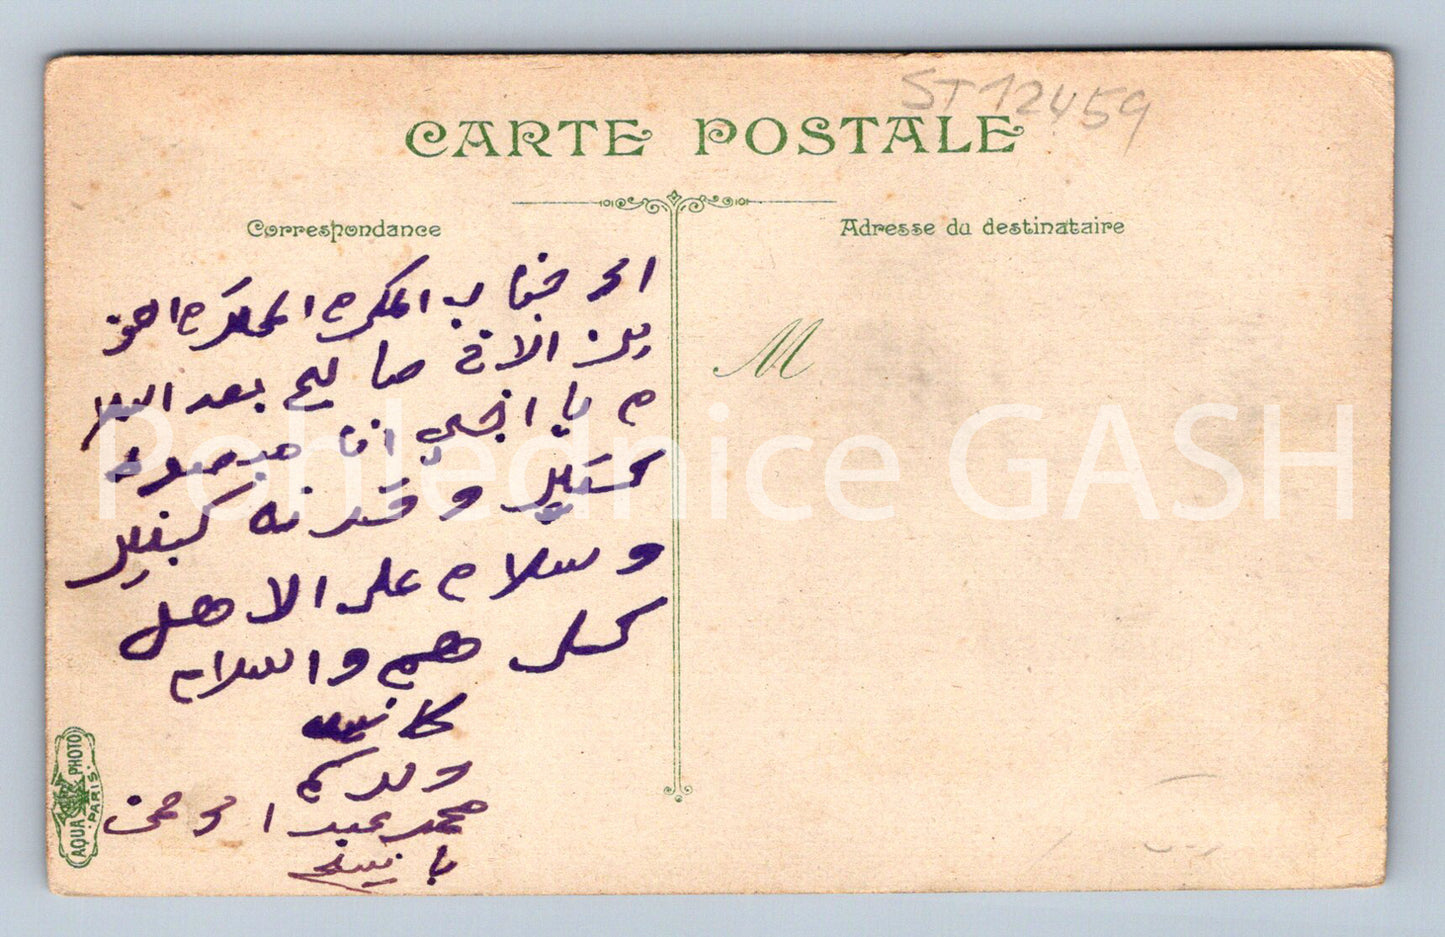 ST 12459
CARTE POSTALE
Correspondance
Adresse du destinataire
M
الى جناب المكرم المحترم
الاخ صالح بعد السلا
م يا اخي انا مبسوط
كتير و
وسلام على الاهل
كل هم والسلام
كاتبه
ولدكم
محمد عبد الرحمن
AQUA PHOTO
PARIS.
Pohlednice GASH